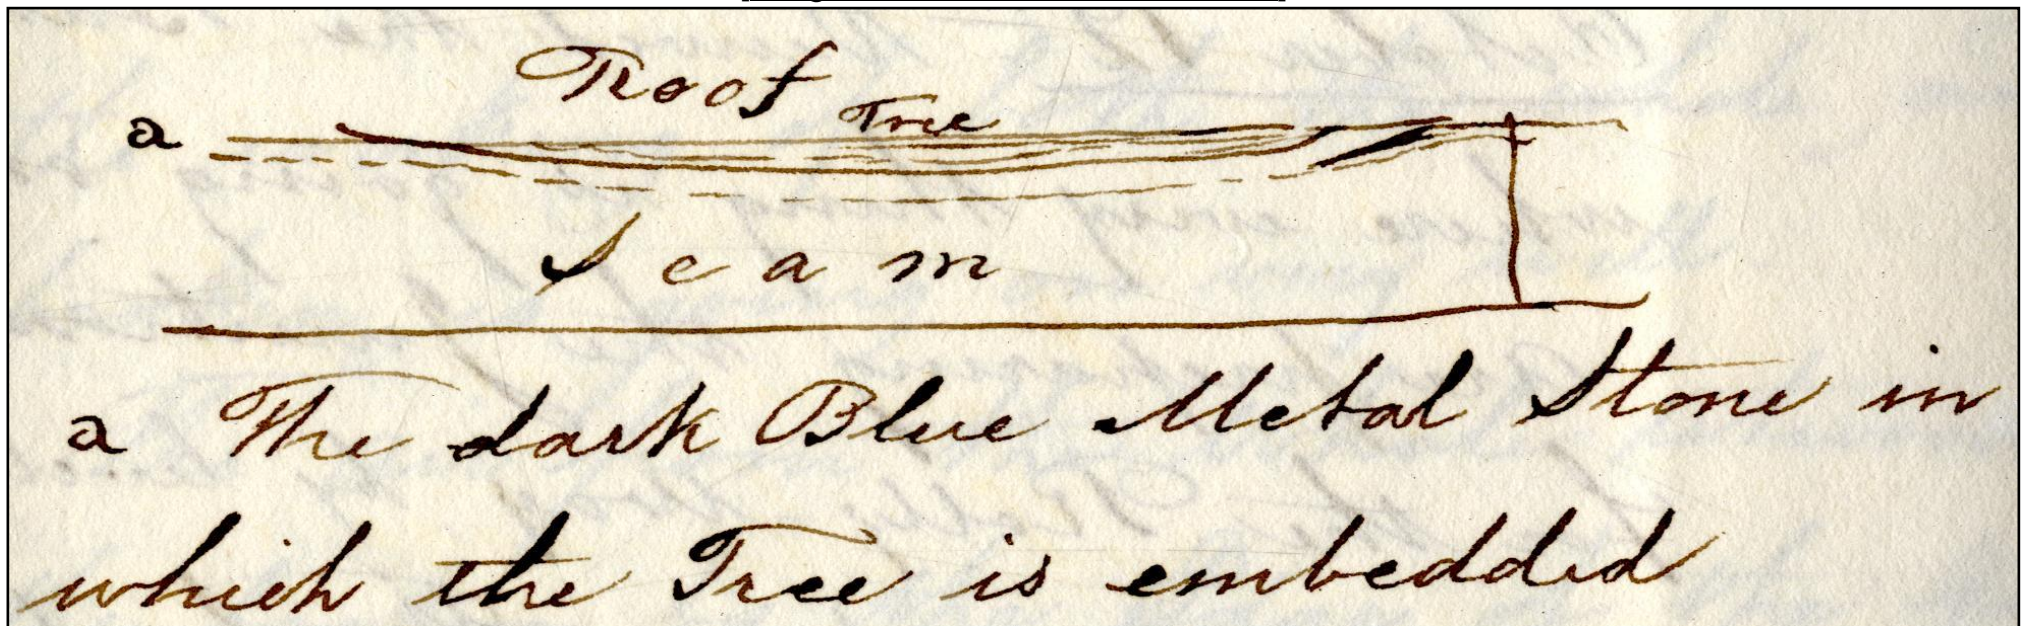 Roof
Tree
a
Seam
a The dark Blue Metal Stone in
which the Tree is embedded